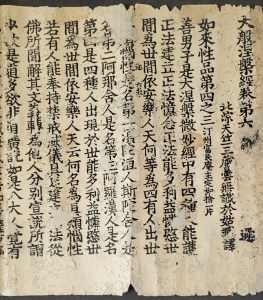 大般涅槃經卷第六
北涼天竺三藏曇無讖於姑臧譯
如來性品第四之三
善男子是大涅槃微妙經中有四種人能護
正法建立正法憶念正法能多利益憐愍世
間為世間依安樂人天何等為四有人出世
具煩惱性是名第一須陀洹人斯陀含人是
名第二阿那含人是名第三阿羅漢人是名
第四是四種人出現於世能多利益憐愍世
間為世間依安樂人天云何名為具煩惱性
若有人能奉持禁戒威儀具足建立正法從
佛所聞解其文義轉為他人分別宣說所謂
少欲是道多欲非道廣說如是八大人覺有